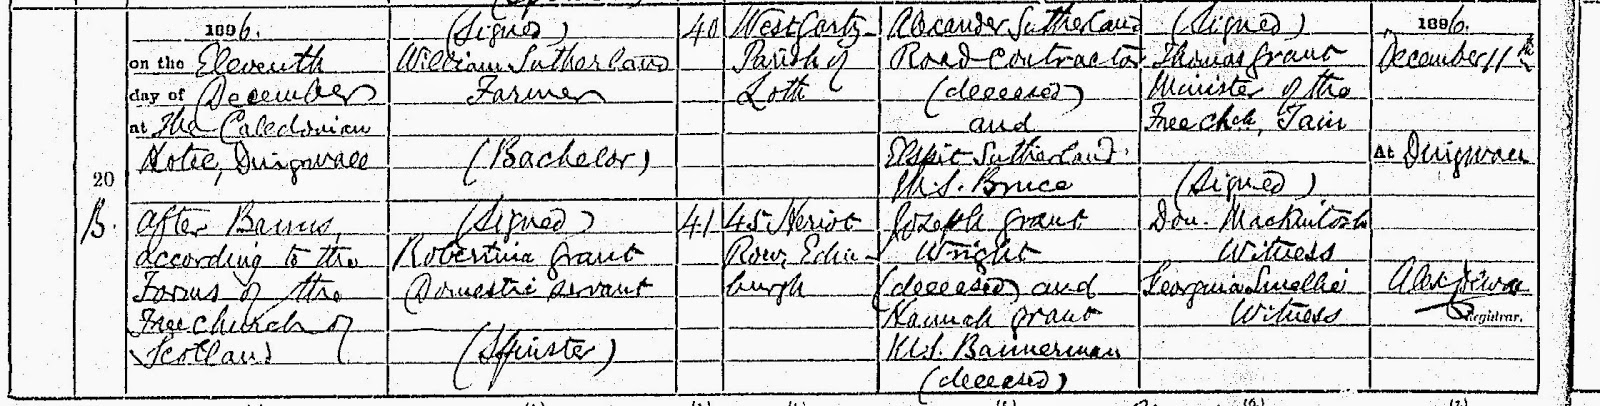 1896.
on the Eleventh
day of December
at The Caledonian
Hotel, Dingwall
20
B.
After Banns,
according to the
Forms of the
Free Church of
Scotland
(Signed)
William Sutherland
Farmer
(Bachelor)
(Signed)
Robertina Grant
Domestic Servant
(Spinster)
40
41
West Garty
Parish of
Loth
45 Heriot
Row, Edin-
burgh
Alexander Sutherland
Road Contractor
(deceased)
and
Elspit Sutherland
M.S. Bruce
Joseph Grant
Wright
(deceased) and
Hannah Grant
M.S. Bannerman
(deceased)
(Signed)
Thomas Grant
Minister of the
Free Chch, Tain
(Signed)
Don. Mackintosh
Witness
Georgina Smellie
Witness
1896.
December 11th
At Dingwall
Alex
Registrar.